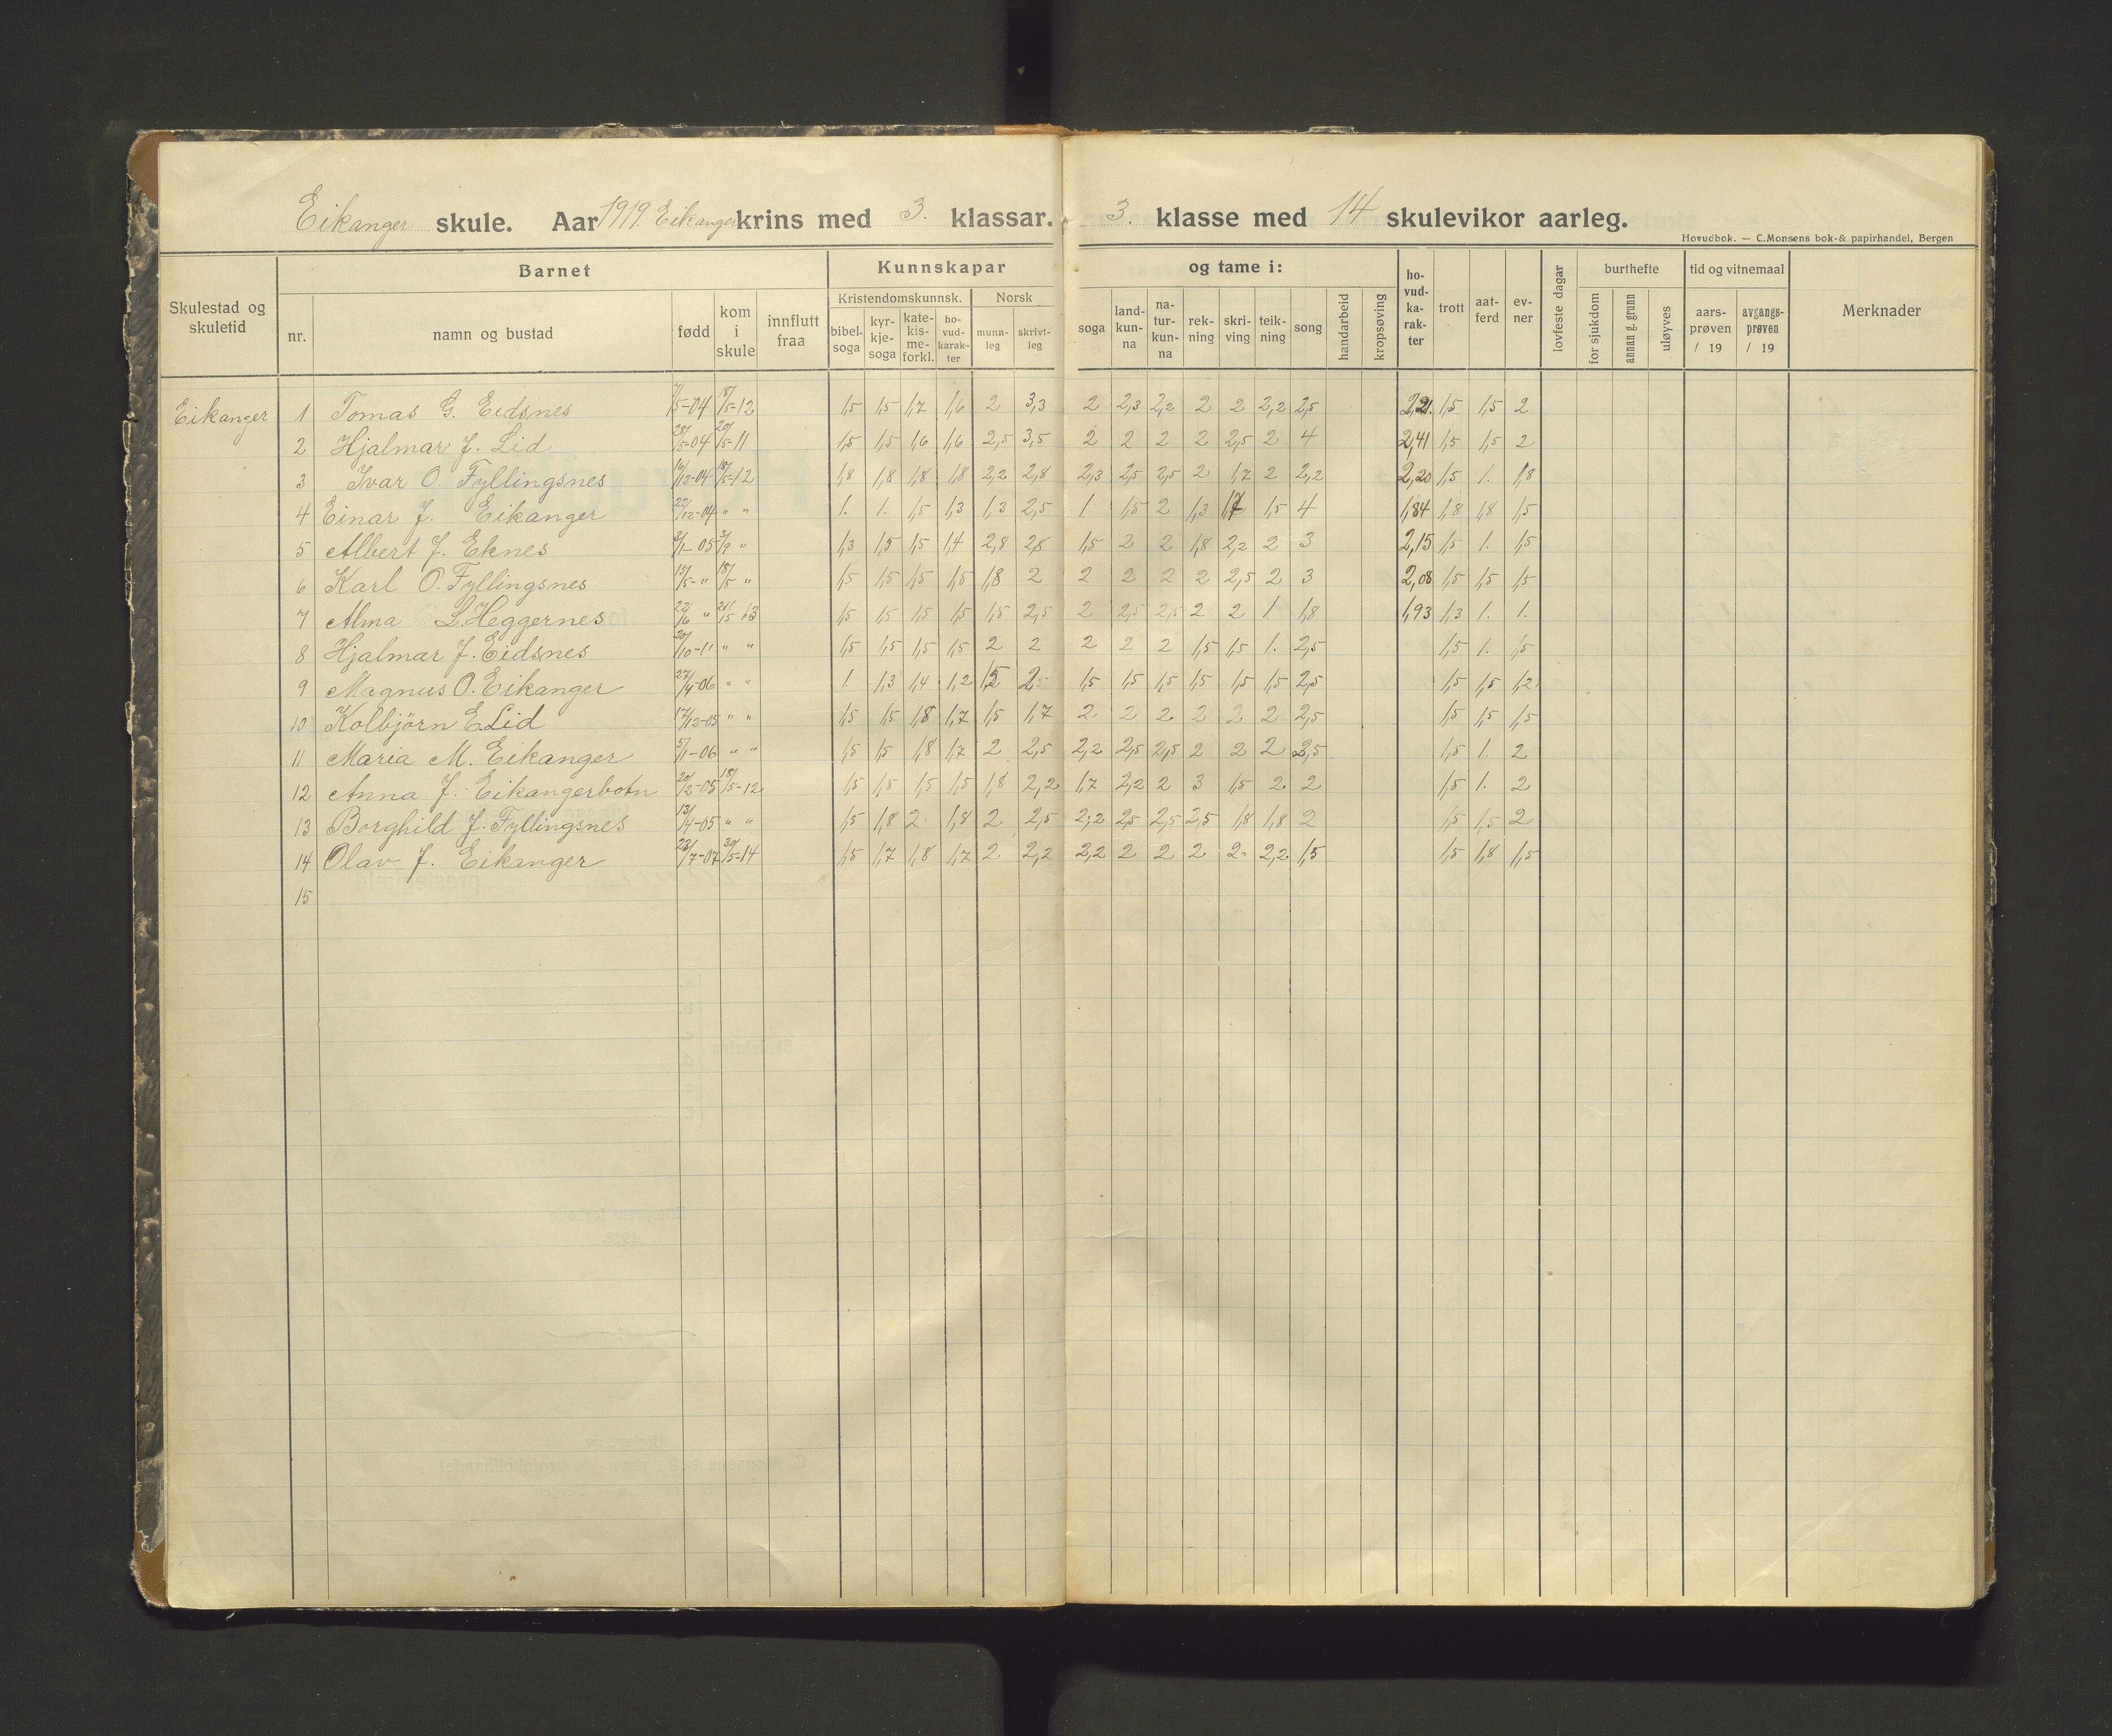 Eikanger skule. Aar 1919. Eikanger krins med 3. klassar. 3. klasse med 14 skulevikor aarleg.
Hovudbok. — C.Monsens bok-& papirhandel, Bergen
Skulestad og skuletid
Barnet
nr.
namn og bustad
fødd
kom i skule
innflutt fraa
Kunnskapar og tame i:
Kristendomskunnsk.
bibel-soga
kyr-kje-soga
kate-kis-me-forkl.
ho-vud-karak-ter
Norsk
munn-leg
skrivt-leg
soga
land-kun-na
na-tur-kun-na
rek-ning
skri-ving
teik-ning
song
handarbeid
kropsøving
ho-vud-ka-rak-ter
trott
aat-ferd
ev-ner
lovfeste dagar
burthefte
for sjukdom
annan g. grunn
uløyves
tid og vitnemaal
aars-prøven / 19
avgangs-prøven / 19
Merknader
Eikanger 1 Tomas G. Eidsnes 7/5-04 18/5-12 1,5 1,5 1,7 1,6 2 3,3 2 2,3 2,2 2 2 2,2 2,5 2,21. 1,5 1,5 2
2 Hjalmar J. Lid 28/5-04 20/5-11 1,5 1,5 1,6 1,6 2,5 3,5 2 2 2 2 2,5 2 4 2,41 1,5 1,5 2
3 Ivar O. Fyllingsnes 16/12-04 18/5-12 1,8 1,8 1,8 1,8 2,2 2,8 2,3 2,5 2,5 2 1,7 2 2,2 2,20 1,5 1. 1,8
4 Einar J. Eikanger 22/12-04 " " 1. 1. 1,5 1,3 1,3 2,5 1 1,5 2 1,3 1,7 1,5 4 1,84 1,8 1,8 1,5
5 Albert J. Eknes 3/1-05 3/9 " 1,3 1,5 1,5 1,4 2,8 2,8 1,5 2 2 1,8 2,2 2 3 2,15 1,5 1. 1,5
6 Karl O. Fyllingsnes 15/5-" 18/5 " 1,5 1,5 1,5 1,5 1,8 2 2 2 2 2 2,5 2 3 2,08 1,5 1,5 1,5
7 Alma L. Heggernes 22/6 " 21/5 13 1,5 1,5 1,5 1,5 1,5 2,5 2 2,5 2,5 2 2 1 1,8 1,93 1,3 1. 1.
8 Hjalmar J. Eidsnes 20/10-" " " 1,5 1,5 1,5 1,5 2 2 2 2 2 1,5 1,5 1. 2,5 1,5 1. 1,5
9 Magnus O. Eikanger 27/4-06 " " 1. 1,3 1,4 1,2 1,5 2 1,5 1,5 1,5 1,5 1,5 1,5 2,5 1,5 1,5 1,2
10 Kolbjörn E. Lid 17/12-05 " " 1,5 1,5 1,8 1,7 1,5 1,7 2. 2 2. 2 2 2 2,5 1,5 1,5 1,5
11 Maria M. Eikanger 5/1-06 " " 1,5 1,5 1,8 1,7 2 2,5 2,2 2,5 2,5 2 2 2 2,5 1,5 1. 2
12 Anna J. Eikangerbotn 20/2-05 18/5-12 1,5 1,5 1,5 1,5 1,8 2,2 1,7 2,2 2 3 1,5 2. 2 1,5 1. 2
13 Borghild J. Fyllingsnes 13/4-05 " " 1,5 1,8 2. 1,8 2. 2,5 2,2 2,5 2,5 2,5 1,8 1,8 2 1,5 1,5 2
14 Olav J. Eikanger 23/7-07 20/5-14 1,5 1,7 1,8 1,7 2 2,2 2,2 2 2 2 2. 2,2 1,5 1,5 1,8 1,5
15